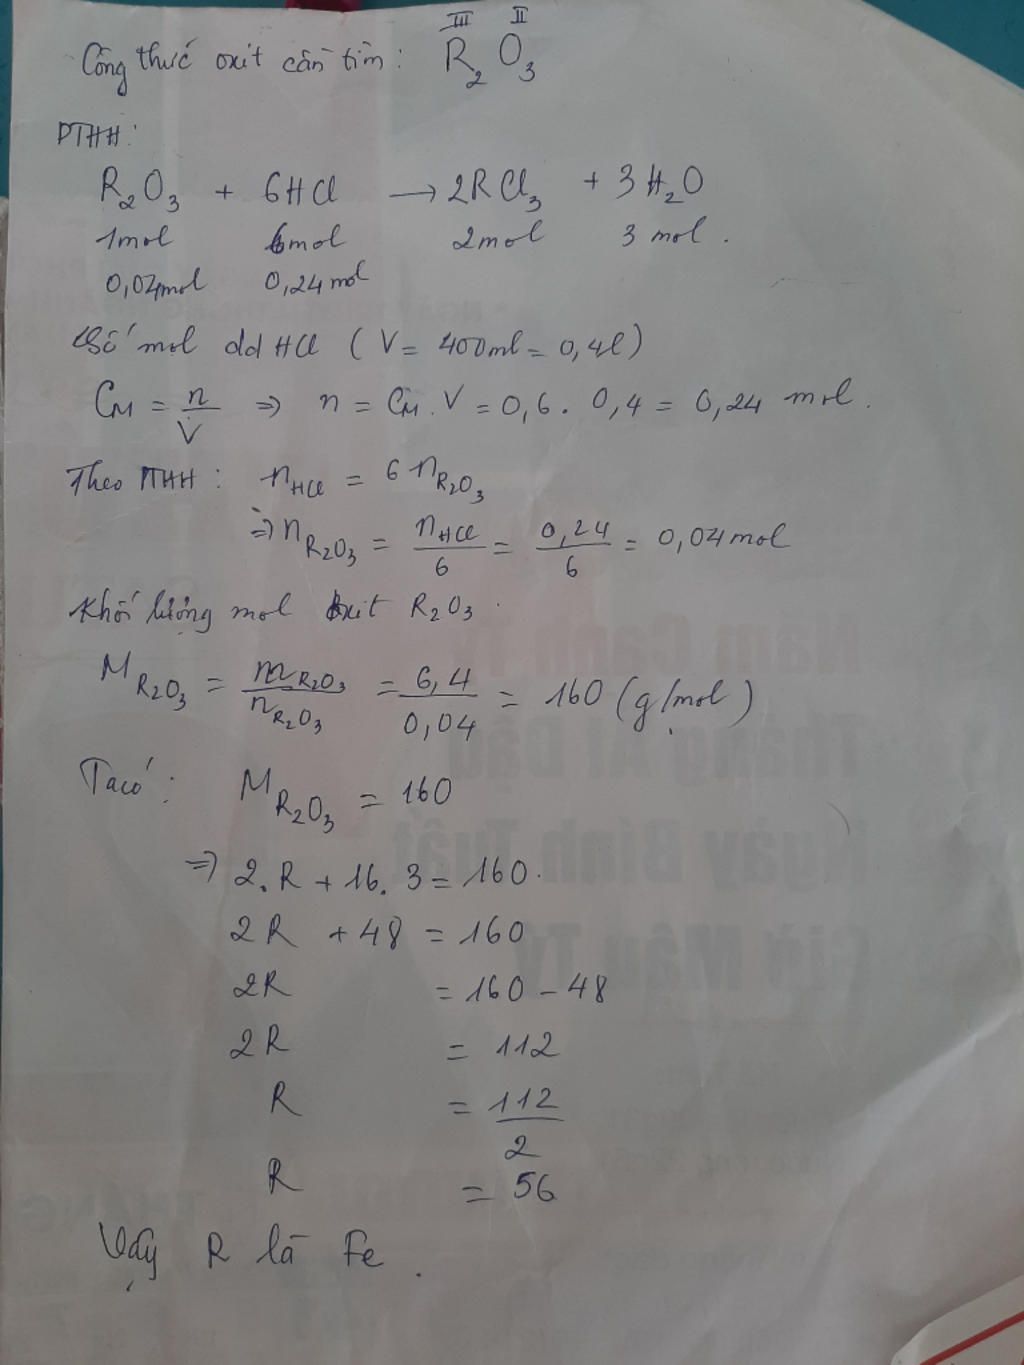 III II
Công thức oxit cần tìm: R₂O₃
PTHH:
R₂O₃ + 6HCl → 2RCl₃ + 3H₂O
1mol 6mol 2mol 3 mol.
0,04mol 0,24mol
Số mol dd HCl (V = 400ml = 0,4l)
C_M = n/V ⇒ n = C_M . V = 0,6 . 0,4 = 0,24 mol.
Theo PTHH: n_HCl = 6 n_R₂O₃
⇒ n_R₂O₃ = n_HCl/6 = 0,24/6 = 0,04 mol
Khối lượng mol oxit R₂O₃.
M_R₂O₃ = m_R₂O₃/n_R₂O₃ = 6,4/0,04 = 160 (g/mol)
Ta có: M_R₂O₃ = 160
⇒ 2.R + 16.3 = 160.
2R + 48 = 160
2R = 160 - 48
2R = 112
R = 112/2
R = 56
Vậy R là Fe.
Năm Canh Tý
Tháng Ất Dậu
Ngày Bính Tuất
Giờ Mậu Tý